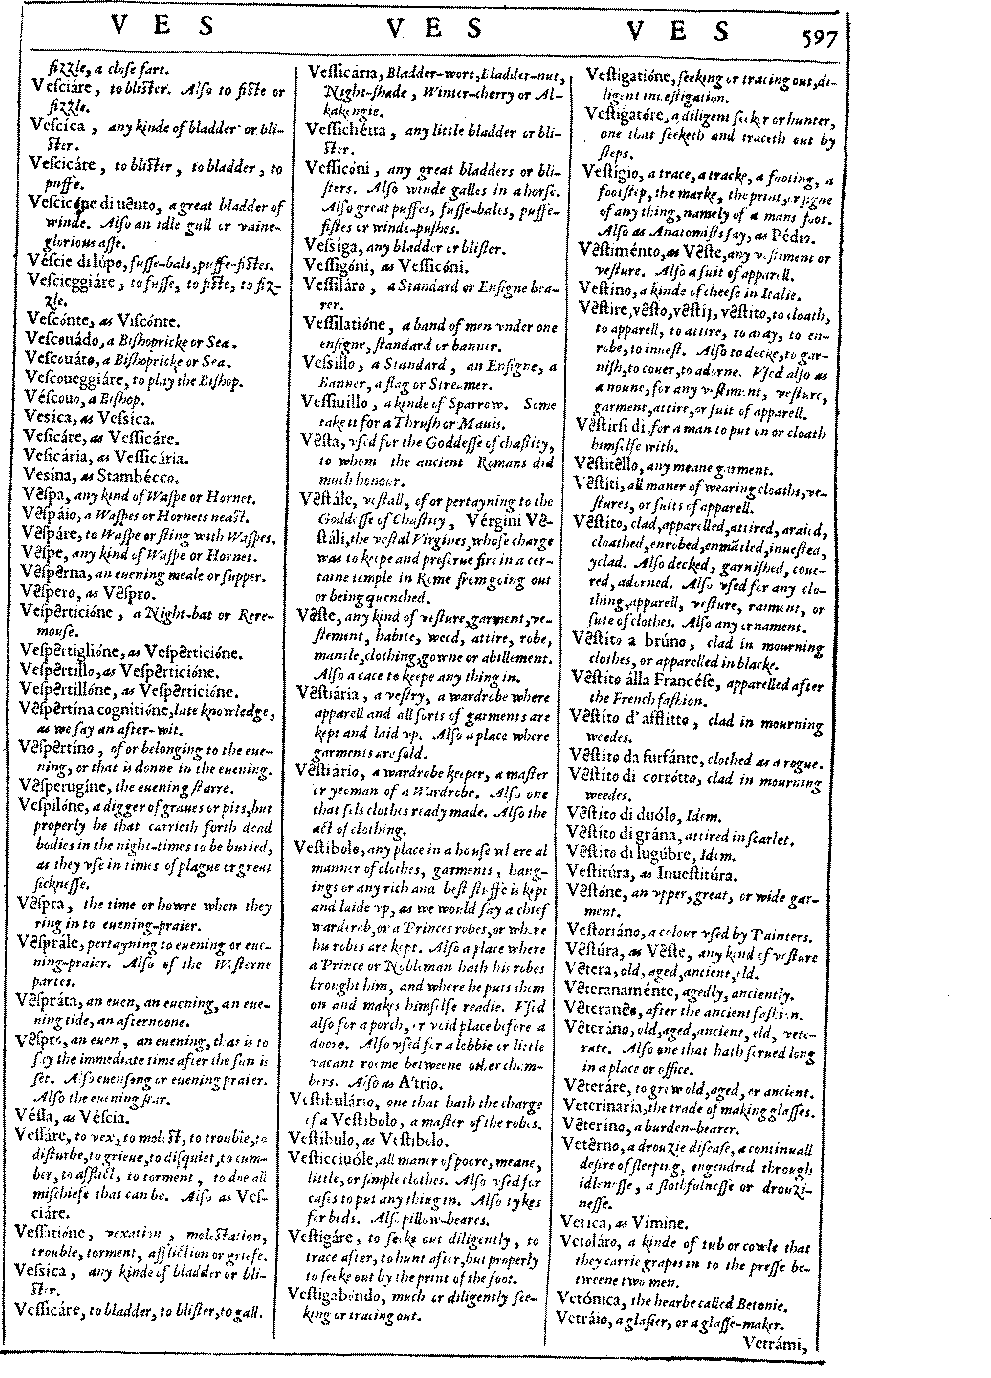 V E S V E S V E S 597
fizzle, a close fart.
Vesciáre, to blister. Also to fiste or
fizzle.
Vescíca, any kinde of bladder or bli-
ster.
Vescicáre, to blister, to bladder, to
puffe.
Vescicóne di uênto, a great bladder of
winde. Also an idle gull or vaine-
glorious asse.
Véscie di lúpo, fusse-bals, puffe-fistes.
Vescieggiáre, to fusse, to fiste, to fiz-
zle.
Vescónte, as Viscónte.
Vescouádo, a Bishopricke or Sea.
Vescouáto, a Bishopricke or Sea.
Vescoueggiáre, to play the Bishop.
Véscouo, a Bishop.
Vesica, as Vessica.
Vesicáre, as Vessicáre.
Vesicária, as Vessicária.
Vesina, as Stambécco.
Vêspa, any kind of Waspe or Hornet.
Vêspáio, a Waspes or Hornets neast.
Vêspáre, to Waspe or sting with Waspes.
Vêspe, any kind of Waspe or Hornet.
Vêspêrna, an euening meale or supper.
Vêspero, as Vêspro.
Vespêrticióne, a Night-bat or Rere-
mouse.
Vespêrtiglióne, as Vespêrticióne.
Vespêrtíllo, as Vespêrticióne.
Vespêrtillóne, as Vespêrticióne.
Vêspêrtína cognitióne, late knowledge,
as we say an after-wit.
Vêspêrtíno, of or belonging to the eue-
ning, or that is donne in the euening.
Vêsperugíne, the euening starre.
Vespilóne, a digger of graues or pits, but
properly he that carrieth forth dead
bodies in the night-times to be buried,
as they vse in times of plague or great
sicknesse.
Vêspra, the time or howre when they
ring in to euening-praier.
Vêsprále, pertayning to euening or eue-
ning-praier. Also of the Westerne
partes.
Vêspráta, an euen, an euening, an eue-
ning tide, an afternoone.
Vêspro, an euen, an euening, that is to
say the immediate time after the sun is
set. Also euensong or euening praier.
Also the euening star.
Véssa, as Véscia.
Vessáre, to vex, to molest, to trouble, to
disturbe, to grieue, to disquiet, to cum-
ber, to afflict, to torment, to doe all
mischiefe that can be. Also as Ves-
ciáre.
Vessatióne, vexation, molestation,
trouble, torment, affliction or griefe.
Vessíca, any kinde of bladder or bli-
ster.
Vessicáre, to bladder, to blister, to gall.
Vessicária, Bladder-wort, Bladder-nut,
Night-shade, Winter-cherry or Al-
kakengie.
Vessichétta, any little bladder or bli-
ster.
Vessicóni, any great bladders or bli-
sters. Also winde galles in a horse.
Also great puffes, fusse-bales, puffe-
fistes or winde-pushes.
Vessiga, any bladder or blister.
Vessigóni, as Vessicóni.
Vessiláro, a Standard or Ensigne bea-
rer.
Vessilatióne, a band of men vnder one
ensigne, standard or banner.
Vessíllo, a Standard, an Ensigne, a
Banner, a flag or Streamer.
Vessiuillo, a kinde of Sparrow. Some
take it for a Thrush or Mauis.
Vêsta, vsed for the Goddesse of chastity,
to whom the ancient Romans did
much honour.
Vêstále, vestall, of or pertayning to the
Goddesse of Chastity, Vérgini Vê-
stáli, the vestal Virgines, whose charge
was to keepe and preserue fire in a cer-
taine temple in Rome from going out
or being quenched.
Vêste, any kind of vesture, garment, ve-
stement, habite, weed, attire, robe,
mantle, clothing, gowne or abillement.
Also a cace to keepe any thing in.
Vêstiária, a vestry, a wardrobe where
apparell and all sorts of garments are
kept and laid vp. Also a place where
garments are sold.
Vêstiário, a wardrobe keeper, a master
or yeoman of a Wardrobe. Also one
that sels clothes ready made. Also the
act of clothing.
Vestíbolo, any place in a house where al
manner of clothes, garments, hang-
ings or any rich and best stuffe is kept
and laide vp, as we would say a chief
wardrob, or a Princes robes, or where
his robes are kept. Also a place where
a Prince or Nobleman hath his robes
brought him, and where he puts them
on and makes himselfe readie. Vsed
also for a porch, or void place before a
doore. Also vsed for a lobbie or little
vacant roome betweene other cham-
bers. Also as A'trio.
Vestibulário, one that hath the charge
of a Vestíbolo, a master of the robes.
Vestíbulo, as Vestíbolo.
Vesticciuóle, all maner of poore, meane,
little, or simple clothes. Also vsed for
cases to put any thing in. Also tykes
for beds. Also pillow-beares.
Vestigáre, to seeke out diligently, to
trace after, to hunt after, but properly
to seeke out by the print of the foot.
Vestigabóndo, much or diligently see-
king or tracing out.
Vestigatióne, seeking or tracing out, di-
ligent inuestigation.
Vestigatóre, a diligent seeker or hunter,
one that seeketh and traceth out by
steps.
Vestígio, a trace, a tracke, a footing, a
footstep, the marke, the print, or signe
of any thing, namely of a mans foot.
Also as Anatomists say, as Pédio.
Vêstiménto, as Vêste, any vestiment or
vesture. Also a suit of apparell.
Vestino, a kinde of cheese in Italie.
Vêstíre, vêsto, vêstij, vêstíto, to cloath,
to apparell, to attire, to aray, to en-
robe, to inuest. Also to decke, to gar-
nish, to couer, to adorne. Vsed also as
a noune, for any vestiment, vesture,
garment, attire, or suit of apparell.
Vêstirsi di, for a man to put on or cloath
himselfe with.
Vêstitêllo, any meane garment.
Vêstíti, all maner of wearing cloaths, ve-
stures, or suits of apparell.
Vêstíto, clad, apparelled, attired, araied,
cloathed, enrobed, enmãtled, inuested,
yclad. Also decked, garnished, coue-
red, adorned. Also vsed for any clo-
thing, apparell, vesture, raiment, or
sute of clothes. Also any ornament.
Vêstíto a brúno, clad in mourning
clothes, or apparelled in blacke.
Vêstíto álla Francése, apparelled after
the French fashion.
Vêstíto d'afflítto, clad in mourning
weedes.
Vêstíto da furfánte, clothed as a rogue.
Vêstíto di corrótto, clad in mourning
weedes.
Vêstíto di duólo, Idem.
Vêstíto di grána, attired in scarlet.
Vêstíto di lugúbre, Idem.
Vestitúra, as Inuestitúra.
Vêstóne, an vpper, great, or wide gar-
ment.
Vestoriáno, a colour vsed by Painters.
Vêstúra, as Vêste, any kind of vesture
Vêtera, old, aged, ancient, eld.
Vêteranaménte, agedly, anciently.
Vêteranês, after the ancient fashion.
Vêteráno, old, aged, ancient, eld, vete-
rate. Also one that hath serued long
in a place or office.
Vêteráre, to grow old, aged, or ancient.
Veterinaria, the trade of making glasses.
Vêterino, a burden-bearer.
Vetêrno, a drouzie disease, a continuall
desire of sleeping, engendred through
idlenesse, a slothfulnesse or drouzi-
nesse.
Vetica, as Vimine.
Vetoláro, a kinde of tub or cowle that
they carrie grapes in to the presse be-
tweene two men.
Vetónica, the hearbe called Betonie.
Vetráio, a glasier, or a glasse-maker.
Vetrámi,